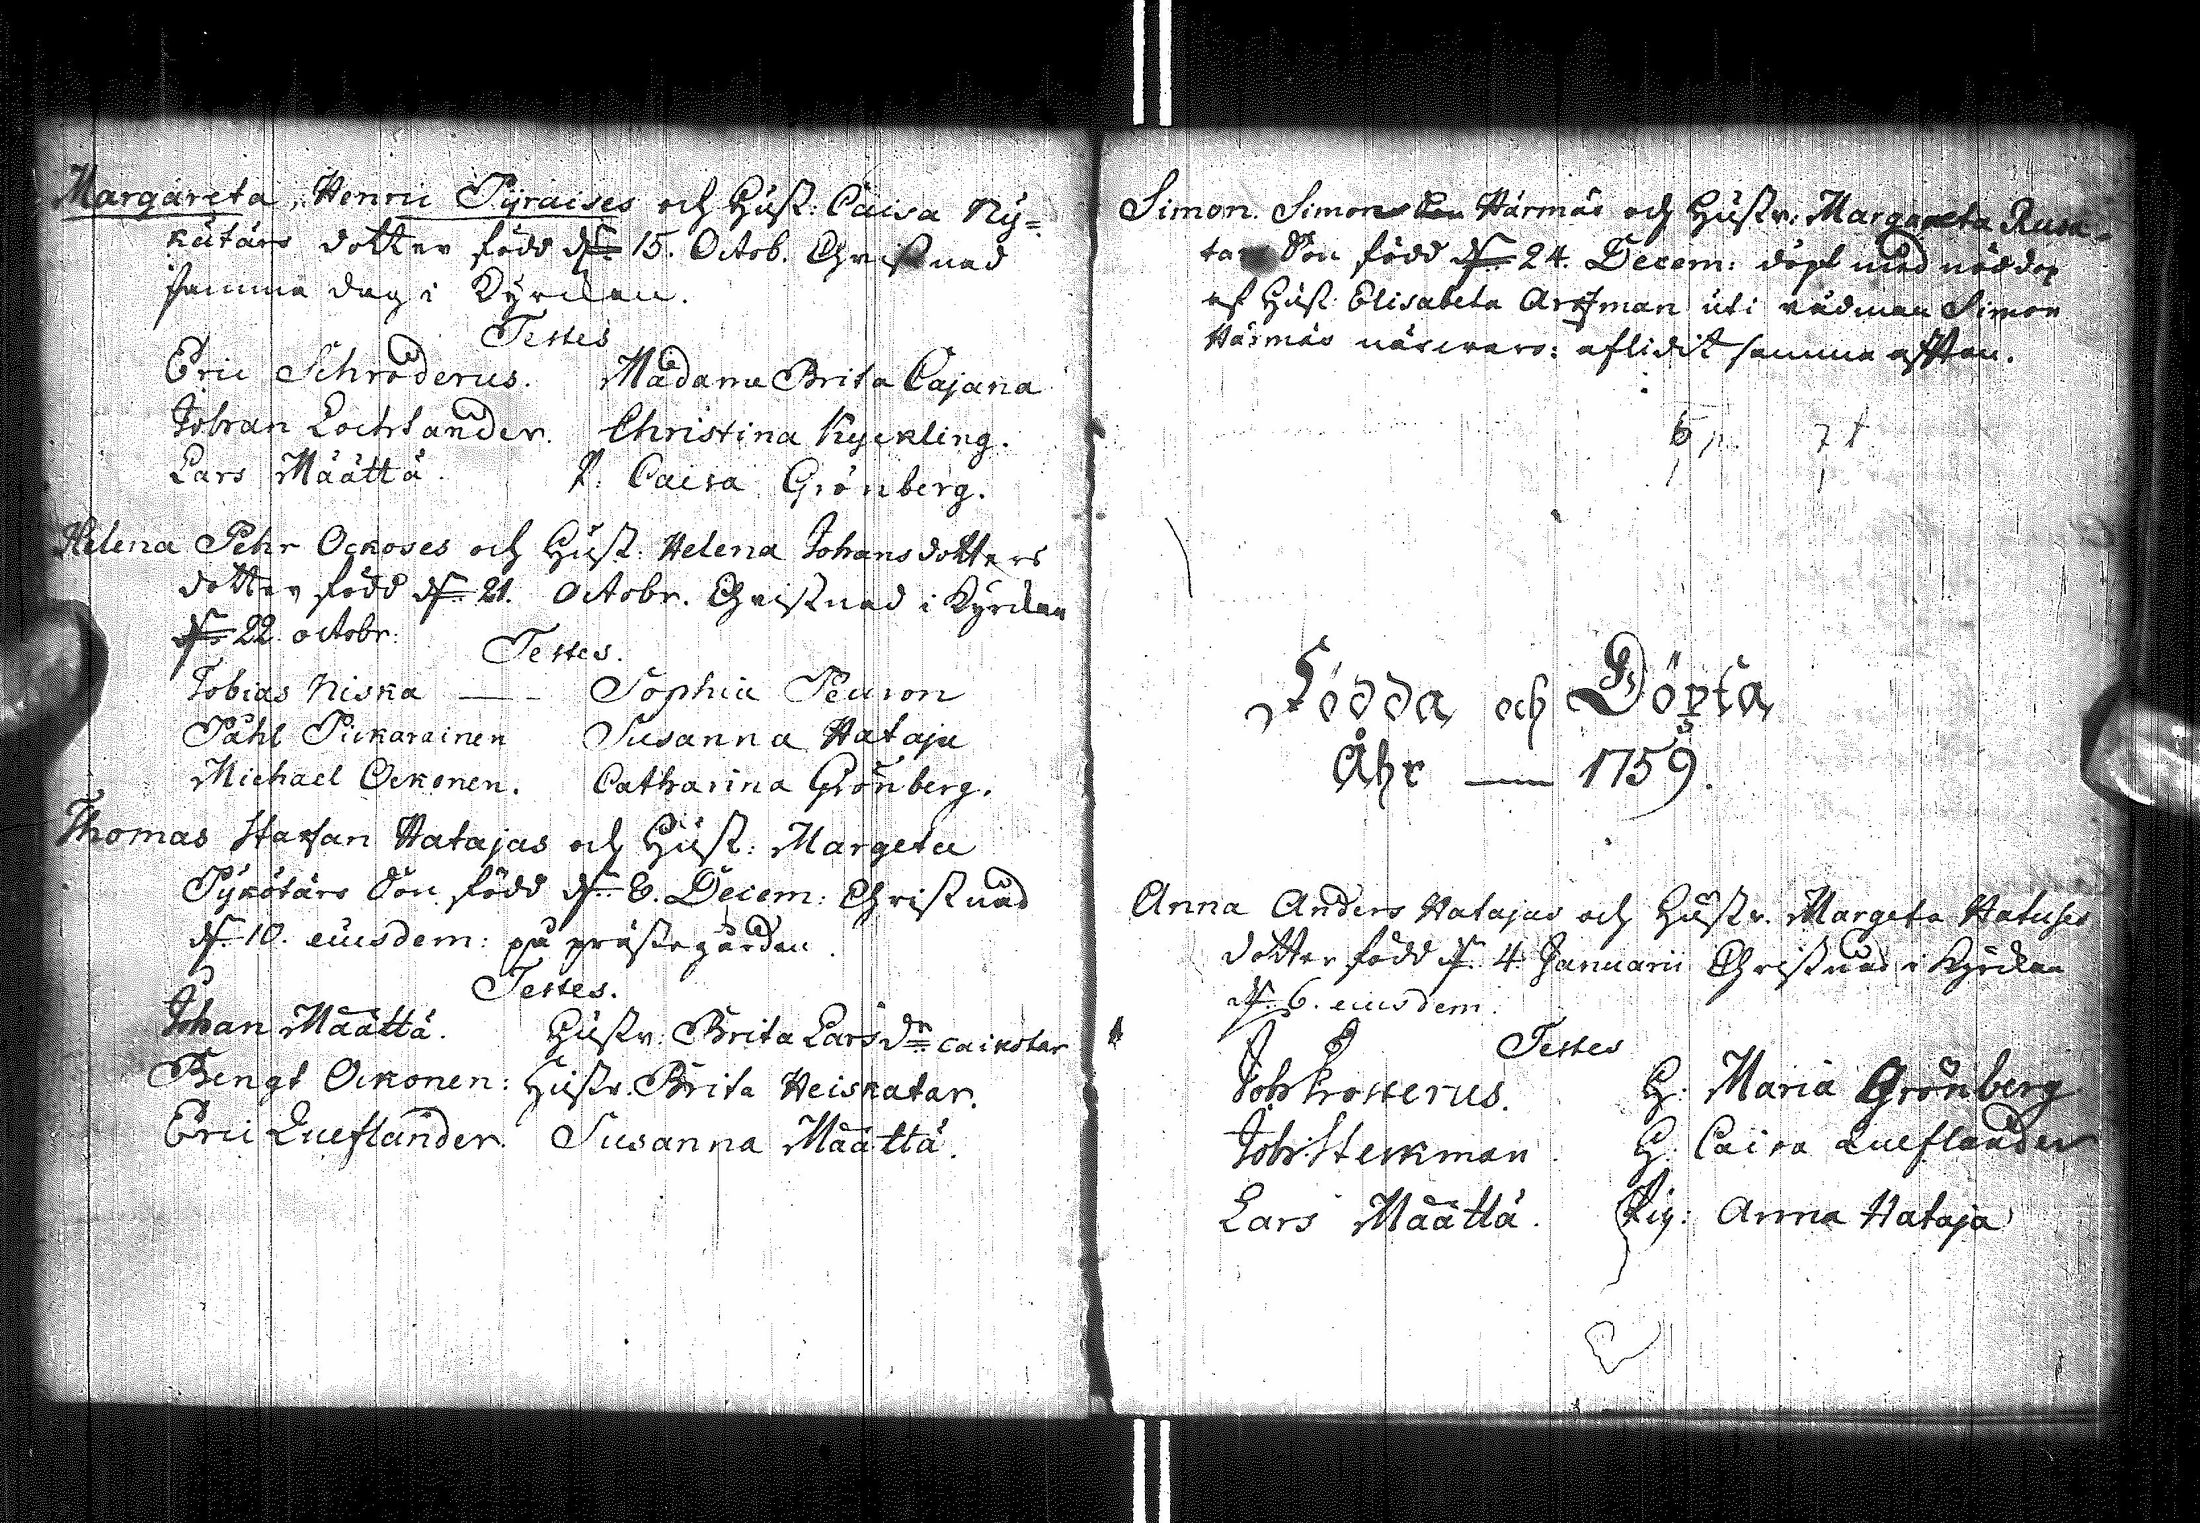 Margareta, Henric Pyraises och Hust: Caisa Ny=
kutärs dotter född d. 15. Octob. Christnad
samma dag i Kyrckan.
Testes
Eric Schroderus. Madame Brita Cajana
Johan Lochlander. Christina Kyckling.
Lars Määttä. P. Caisa Grönberg.
Helena Pehr Ockoses och Hust: Helena Johansdotters
dotter född d. 21. Octobr. Christnad i Kyrckan
d. 22 octobr:
Testes.
Tobias Niska — Sophia Peuron
Påhl Pickarainen Susanna Hataja
Michael Ockonen. Catharina Grönberg.
Thomas Staffan Hatajas och Hust: Margeta
Pykötärs Son född d. 6. Decem: Christnad
d. 10. eiusdem: på prästegården.
Testes.
Johan Määttä. Hustr: Brita Larsdr Cainotar
Bengt Ockonen: Hustr. Brita Heiskatar.
Eric Lueflander. Susanna Määttä.
Simon. Simon Härmäs och Hustr: Margareta Rusa-
tars Son född d. 24. Decem: döpt med nöddop
af Hust: Elisabeta Artman uti nådman Simon
Härmäs närwaro: aflidit samma afton.
6 p. 7 t
Födda och Döpta
Åhr — 1759.
Anna Anders Hatajas och Hustr. Margeta Hatuses
dotter född d. 4 Januarii Christnad i Kyrckan
d. 6. eiusdem.
Testes
Joh: Frosterus. H: Maria Grönberg
Joh: Steckman. H: Caisa Lueflander
Lars Määttä. Pig: Anna Hataja